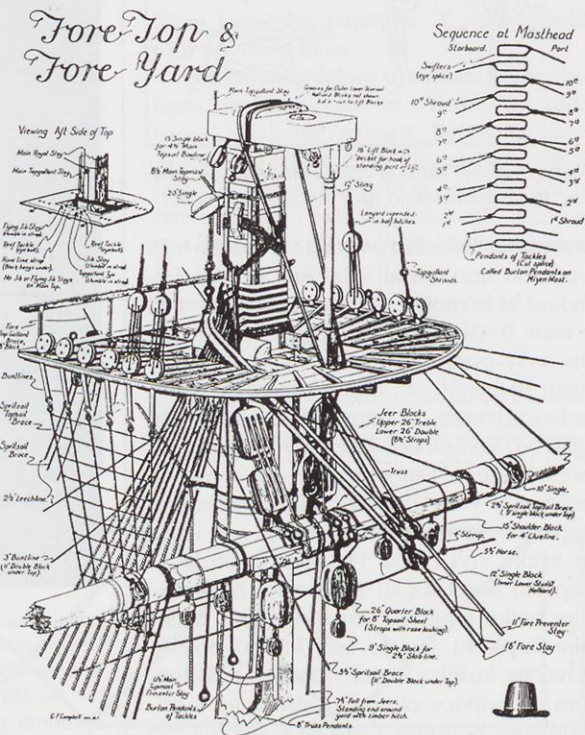 Fore Top &
Fore Yard
Sequence at Masthead
Starboard.
Port
Swifters
(eye splice)
10th Shroud
9th
8th
7th
6th
5th
4th
3rd
2nd
1st Shroud
Pendants of Tackles
(Cut splice)
Called Burton Pendants on
Mizen Mast.
Viewing Aft Side of Top
Main Royal Stay
Main Topgallant Stay
Flying Jib Stay
(thimble in strop)
Reef Tackle
eyebolts.
Jib Stay
(thimble in strop)
No Jib or Flying Jib Stays
on Main Top.
Main Topgallant Stay
15 Single block
for 4½" Main
Topsail Bowline
8½" Main Topmast
Stay
20" Single
18" Lift Block with
becket for hook of
standing part of Lift.
12" Sling
Lanyard expended
in half hitches
Topgallant
Shrouds.
Fore
Brace
Buntlines
Spritsail
Topsail
Brace
Spritsail
Brace
2½" Leechline.
3" Buntline
(11" Double Block
under Top).
Jeer Blocks
Upper 26" Treble
Lower 26" Double
(8½" Straps)
Truss
10" Single.
2½" Spritsail Topsail Brace
(9" single block under Top)
15" Shoulder Block
for 4" Clueline.
4" Stirrup.
5½" Horse.
12" Single Block
(Inner Lower Studdg
Halliard).
26" Quarter Block
for 8" Topsail Sheet
(Straps with rose lashing).
9" Single Block for
2½" Slab line.
3½" Spritsail Brace
(11" Double Block under Top).
7½" Fall from Jeers.
Standing end around
yard with timber hitch.
8" Truss Pendants.
11" Fore Preventer
Stay
18" Fore Stay
6½" Main
Topmast
Preventer Stay
Burton Pendants
of Tackles